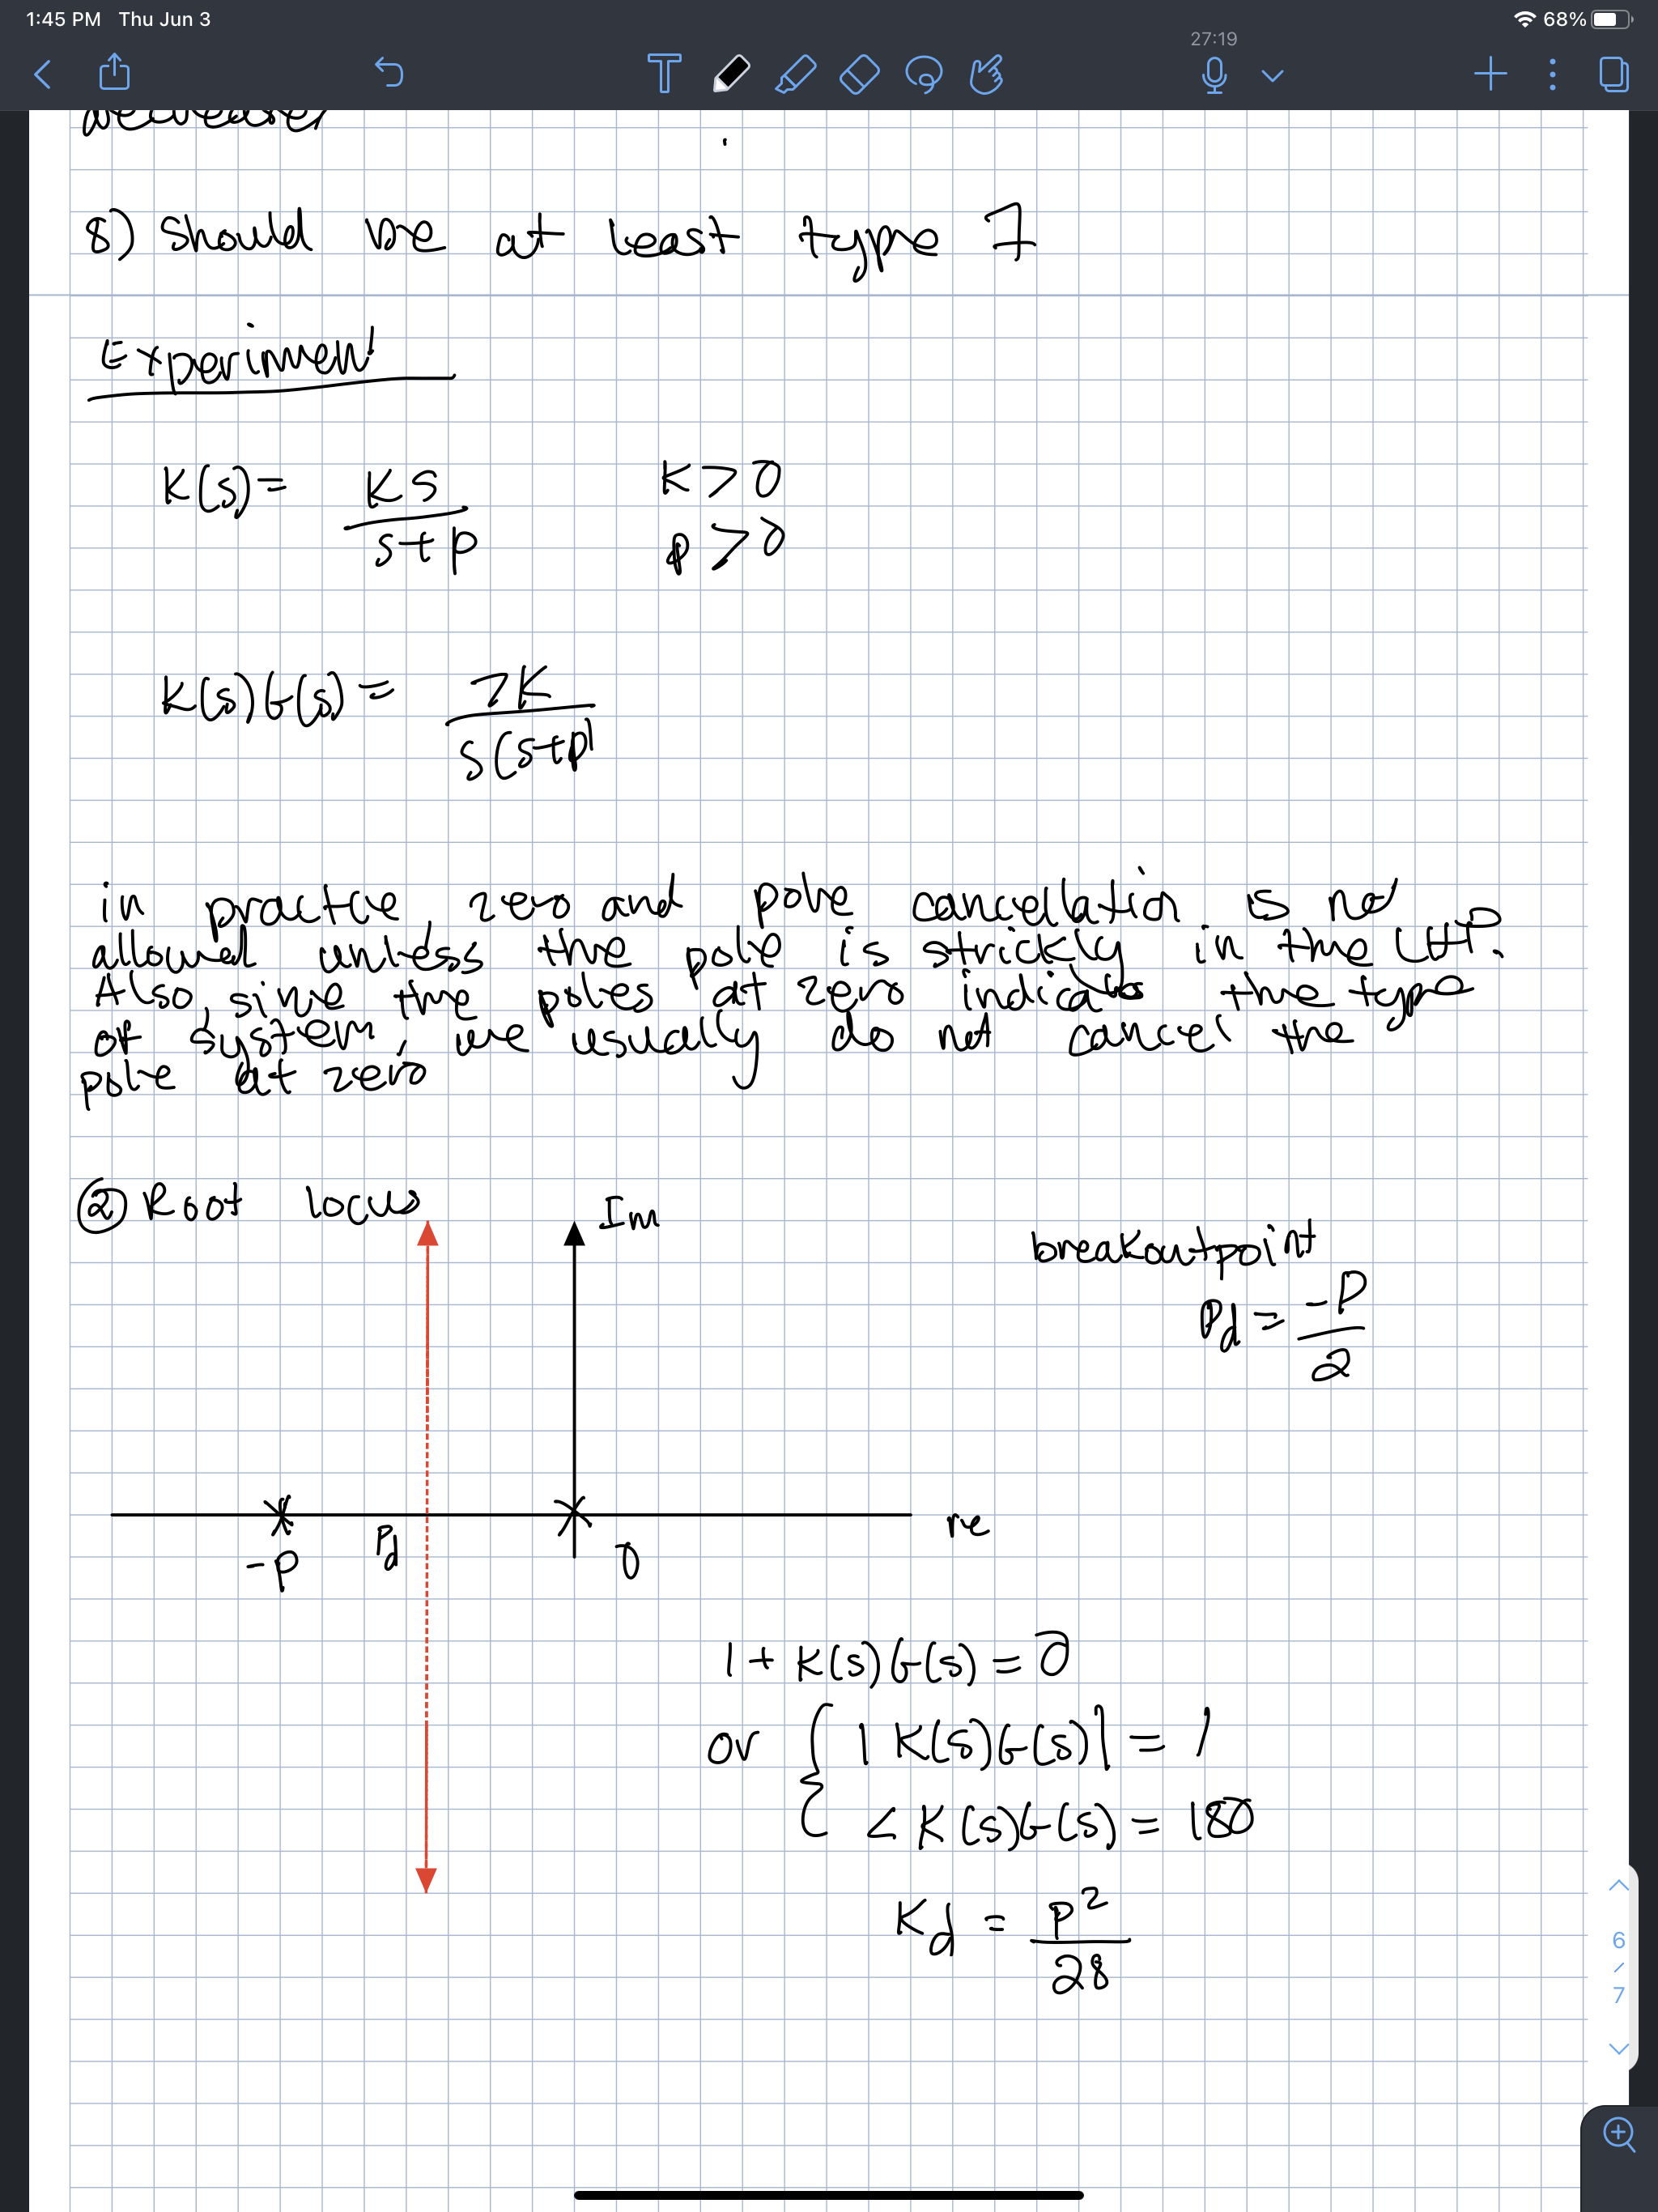 1:45 PM Thu Jun 3
68%
27:19
8) should be at least type 1
Experiment
K(s) = Ks / s+p
K > 0
p > 0
K(s)G(s) = 7K / s(s+p)
in practice, zero and pole cancellation is not
allowed unless the pole is strickly in the LHP.
Also, since the poles at zero indicates the type
of system, we usually do not cancel the
pole at zero
② Root locus
Im
breakoutpoint
Pd = -P / 2
re
-P
Pd
0
1 + K(s)G(s) = 0
or { |K(s)G(s)| = 1
∠K(s)G(s) = 180
Kd = P² / 28
6
/
7